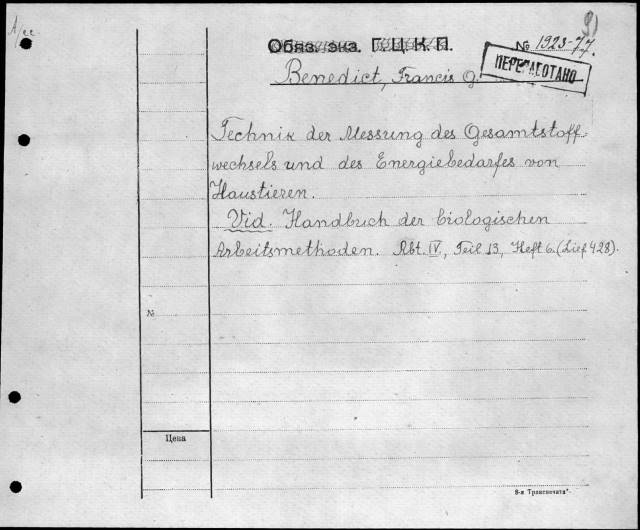 Обяз. экз. Г.Ц.К.П.
№ 1923-77.
ПЕРЕРАБОТАНО
Benedict, Francis G.
Technik der Messung des Gesamtstoff-
wechsels und des Energiebedarfes von
Haustieren.
Vid. Handbuch der biologischen
Arbeitsmethoden. Abt. IV, Teil 13, Heft 6. (Lief 428).
№
Цена
8-я Транспечата"